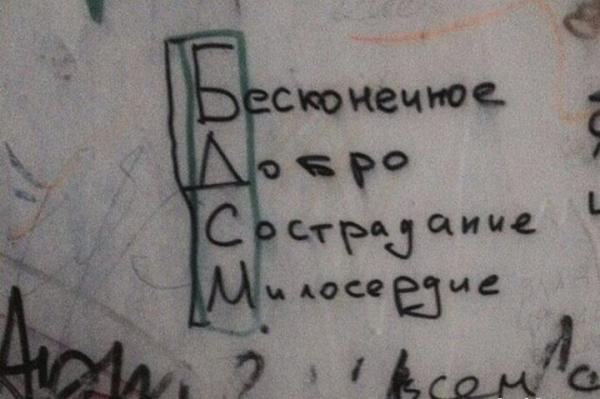 Бесконечное
Добро
Сострадание
Милосердие
всем